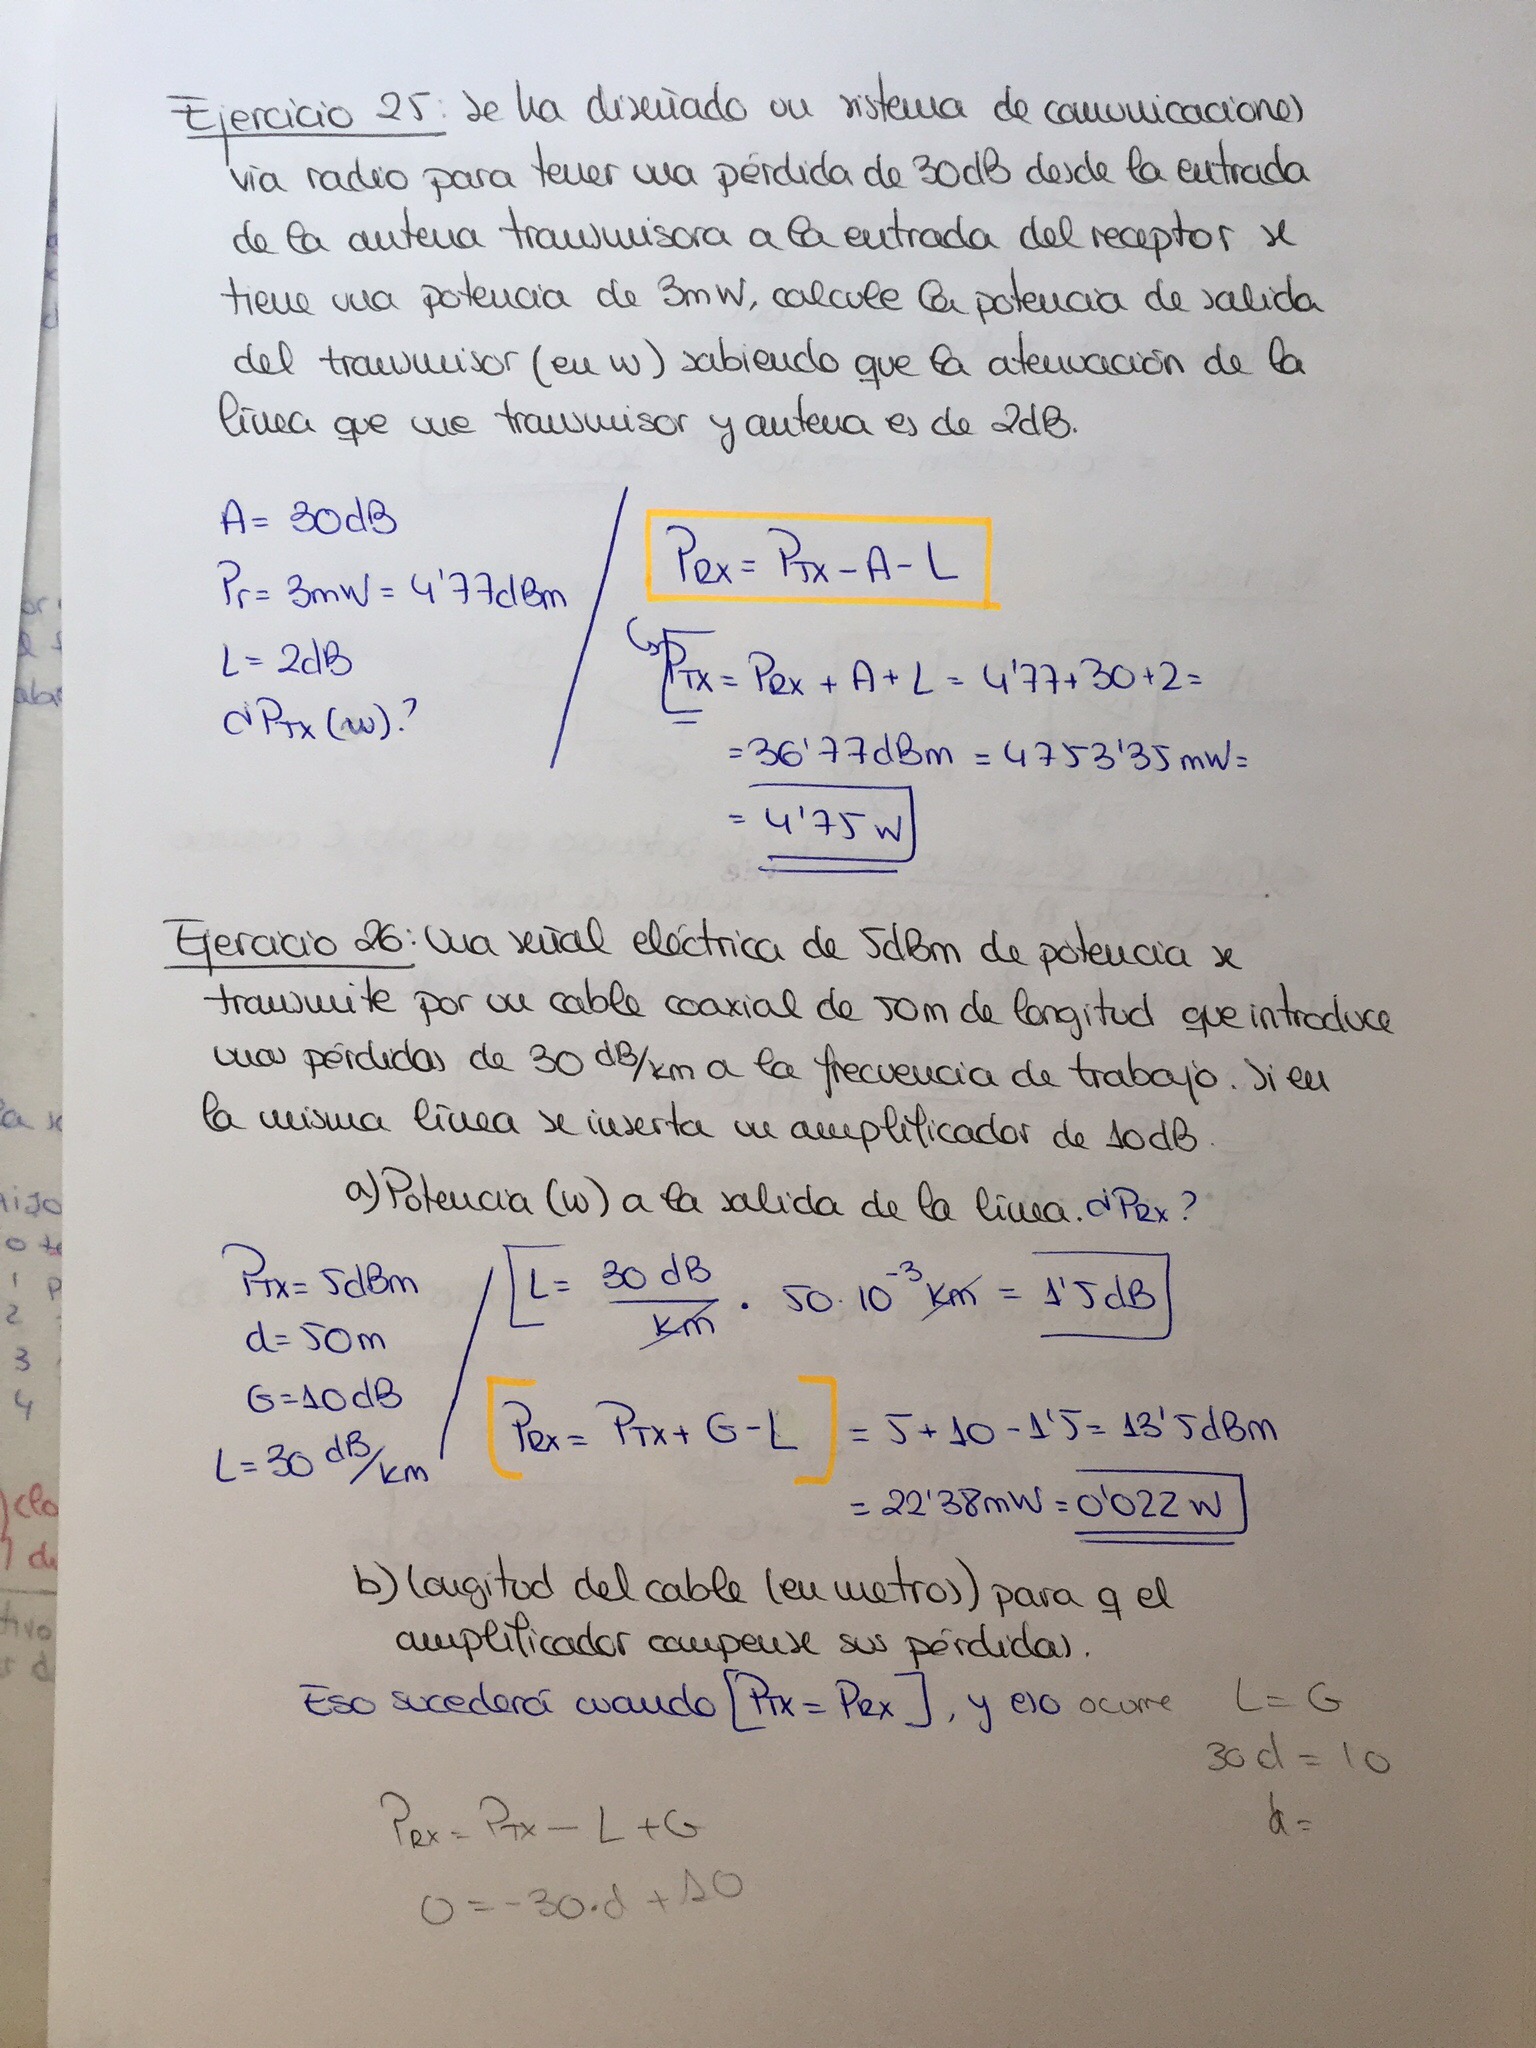 Ejercicio 25: se ha diseñado un sistema de comunicaciones
vía radio para tener una pérdida de 30dB desde la entrada
de la antena transmisora a la entrada del receptor se
tiene una potencia de 3mW, calcule la potencia de salida
del transmisor (en W) sabiendo que la atenuación de la
línea que une transmisor y antena es de 2dB.
A = 30dB
Pr = 3mW = 4'77dBm
L = 2dB
¿PTX (W)?
PRX = PTX - A - L
↳ PTX = PRX + A + L = 4'77+30+2=
= 36'77dBm = 4753'35mW=
= 4'75 W
Ejercicio 26: Una señal eléctrica de 5dBm de potencia se
transmite por un cable coaxial de 50m de longitud que introduce
unas pérdidas de 30 dB/km a la frecuencia de trabajo. Si en
la misma línea se inserta un amplificador de 10dB.
a) Potencia (W) a la salida de la línea. ¿PRX?
PTX = 5dBm
d = 50m
G = 10dB
L = 30 dB/km
L = 30 dB/km · 50·10^-3 km = 1'5dB
[PRX = PTX + G - L] = 5 + 10 - 1'5 = 13'5dBm
= 22'38mW = 0'022 W
b) Longitud del cable (en metros) para q el
amplificador compense sus pérdidas.
Eso sucederá cuando [PTX = PRX], y eso ocurre
L = G
30 d = 10
d =
PRX = PTX - L + G
0 = -30·d + 10